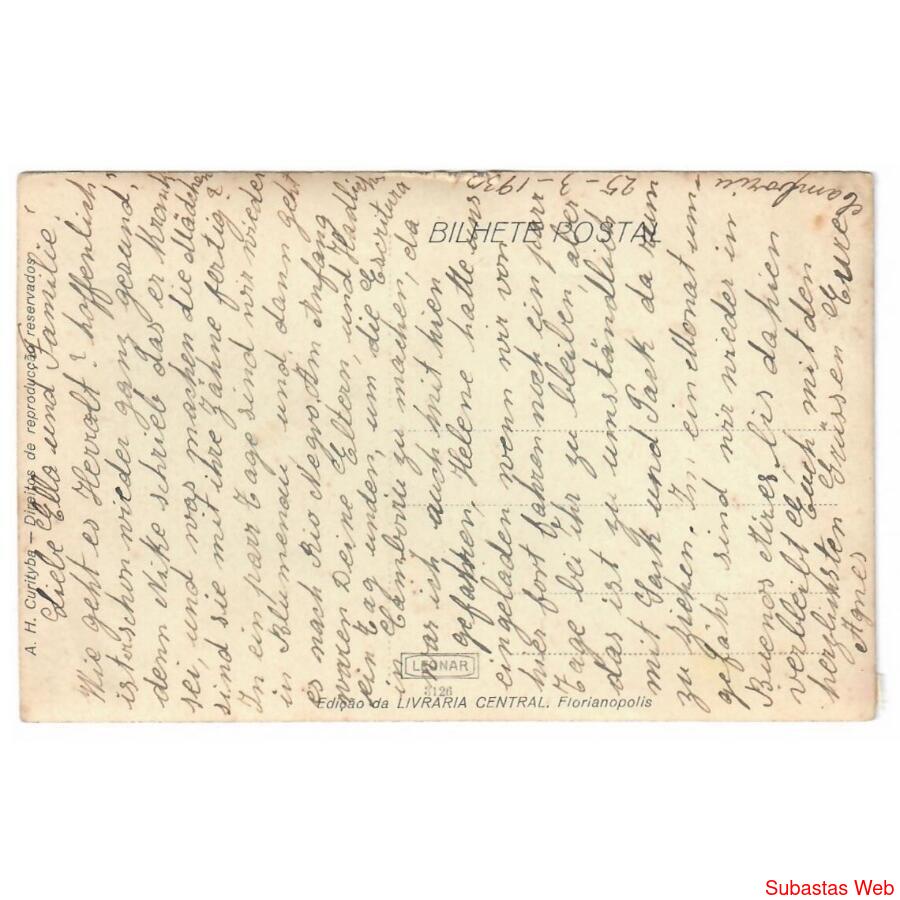 Camboriu
25-3-1930
Liebe Ella und Familie!
Wie geht es Heralt? hoffenlich
ist er schon wieder ganz gesund,
denn Nike schrieb das er krank
sei, und was machen die Mädchen
sind sie mit ihre Zähne fertig?
In ein paar Tage sind wir wieder
in Blumenau und dann geht
es nach Rio Negro. Am Anfang
waren Deine Eltern, und
ein Tag unden, um die Escritura
in Camboriu zu machen, da
war ich auch mit hier
gefahren, Helene hatte uns
eingeladen wenn wir von
hier fort fahren noch ein parr
Tage bei ihr zu bleiben, aber
das ist zu umständlich
mit Sack und Pack da rum
zu ziehen. In ein Monat un-
gefähr sind wir wieder in
Buenos Aires bis dahien
verbleibt Euch mit den
herzlichsten Grüssen Eure
Agnes
BILHETE POSTAL
A. H. Curityba — Direitos de reproducção reservados
LEONAR
3126
Edição da LIVRARIA CENTRAL. Florianopolis
Subastas Web